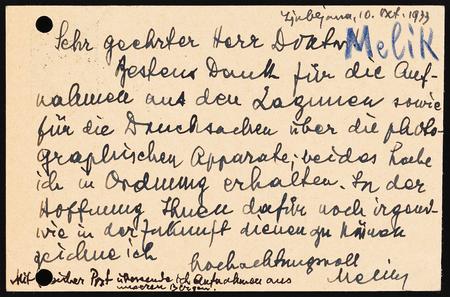 Ljubljana, 10. Okt. 1933
Sehr geehrter Herr Doktor
Melik
Bestens Dank für die Auf-
nahmen aus den Lagunen sowie
für die Drucksachen über die photo-
graphischen Apparate; beides habe
ich in Ordnung erhalten. In der
Hoffnung Ihnen dafür noch irgend-
wie in der Zukunft dienen zu können
zeichne ich
hochachtungsvoll
Melik
Mit gleicher Post übersende ich Aufnahmen aus
unseren Bergen.